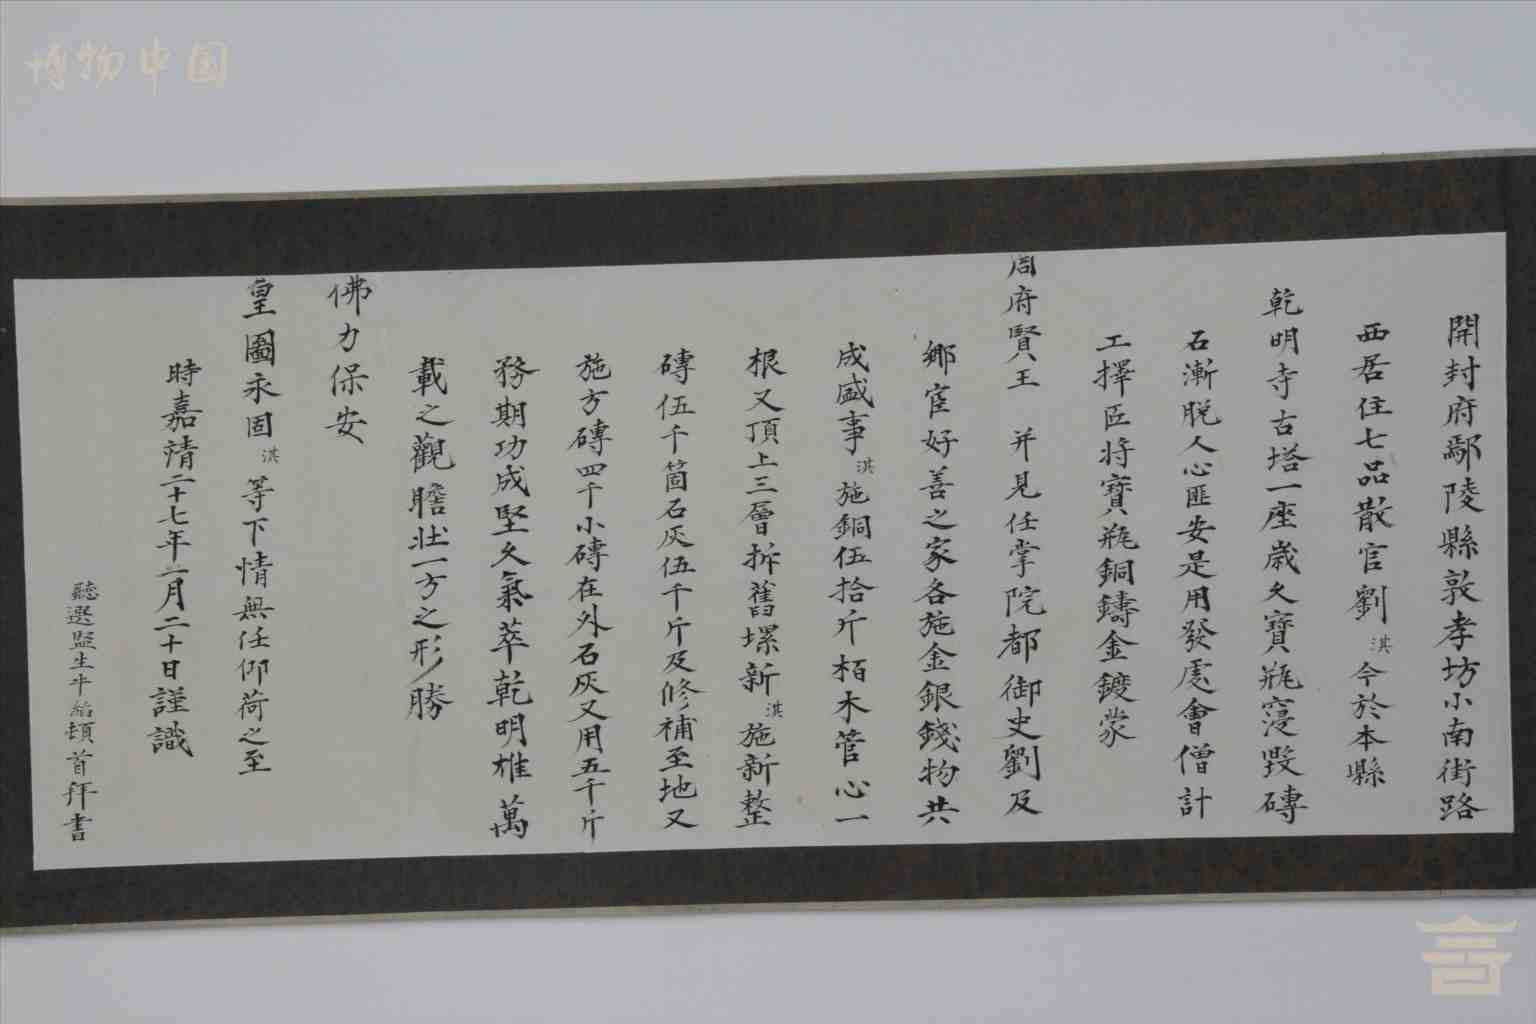 博物中国
開封府鄢陵縣敦孝坊小南街路
西居住七品散官劉淇今於本縣
乾明寺古塔一座歲久寶瓶寖毀磚
石漸脫人心匪安是用發虔會僧計
工擇匠将寶瓶銅鑄金鍍蒙
周府賢王 并見任掌院都御史劉及
鄉宦好善之家各施金銀錢物共
成盛事淇施銅伍拾斤栢木管心一
根又頂上三層拆舊壘新淇施新整
磚伍千箇石灰伍千斤及修補至地又
施方磚四千小磚在外石灰又用五千斤
務期功成堅久氣萃乾明雄萬
載之觀瞻壮一方之形勝
佛力保安
皇圖永固淇等下情無任仰荷之至
時嘉靖二十七年二月二十日謹識
聽選監生牛 頓首拜書